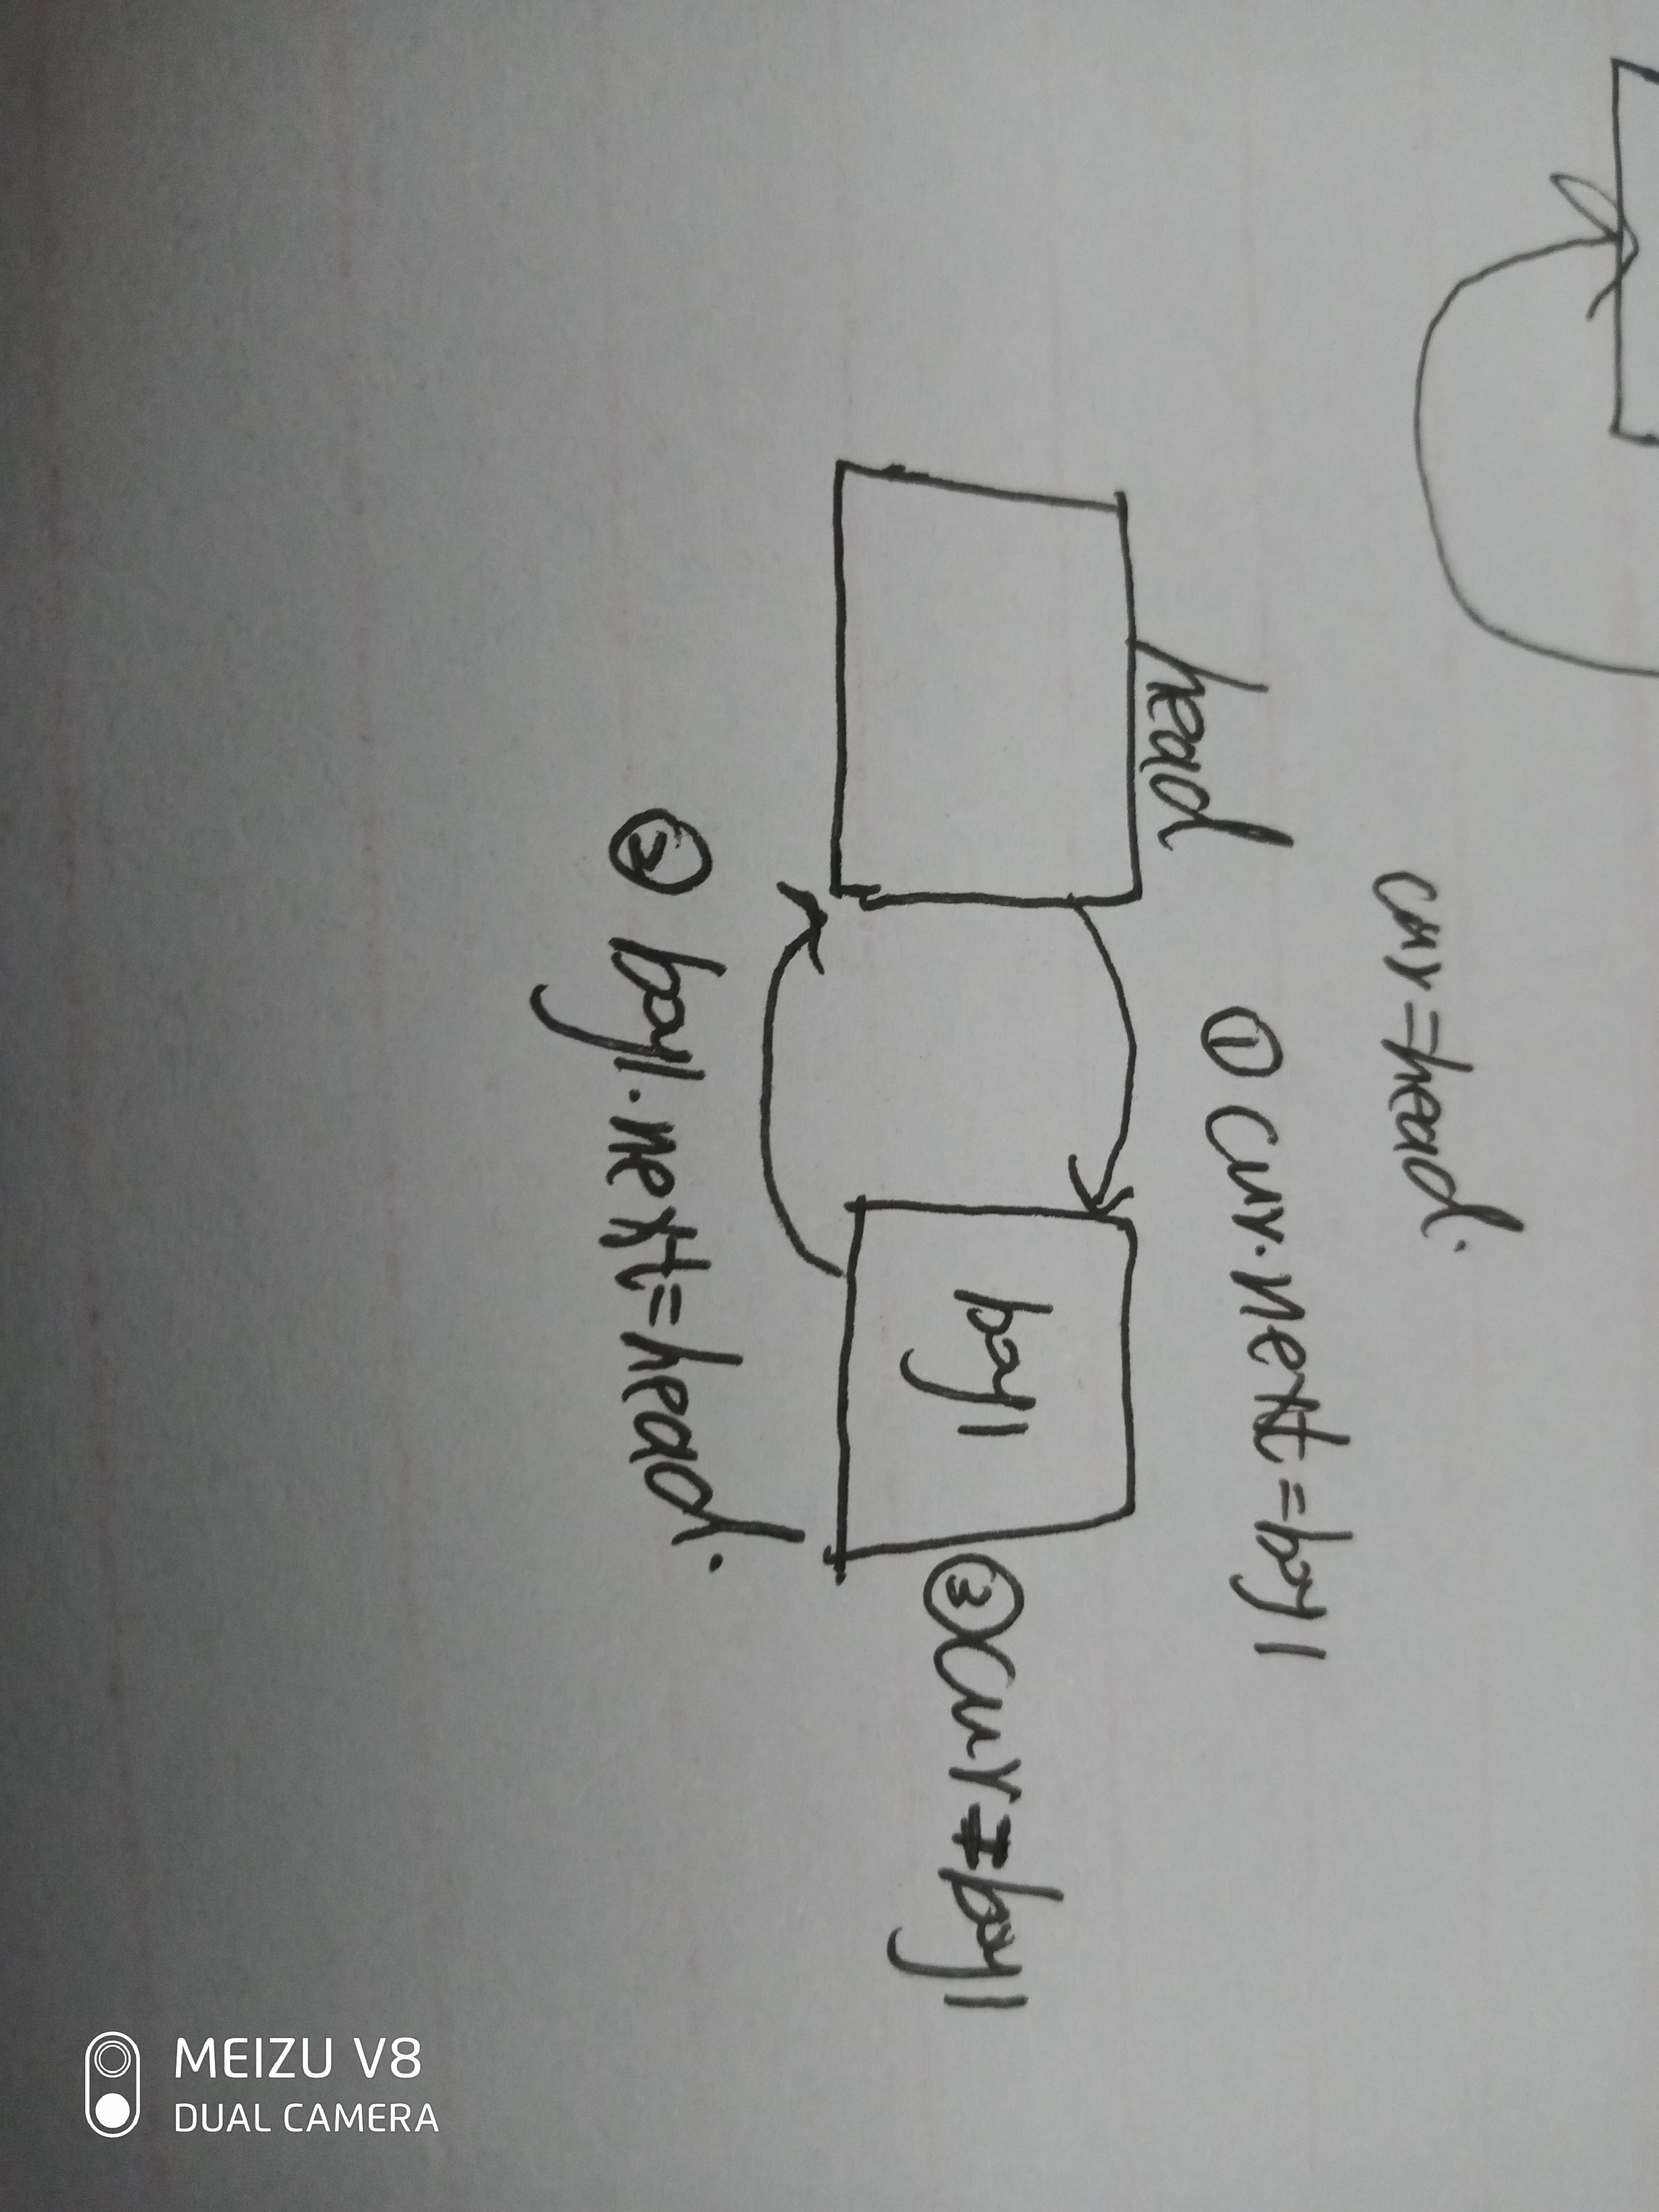 cur=head.
① cur.next=boy1
head
boy1
③cur=boy1
② boy1.next=head.
MEIZU V8
DUAL CAMERA